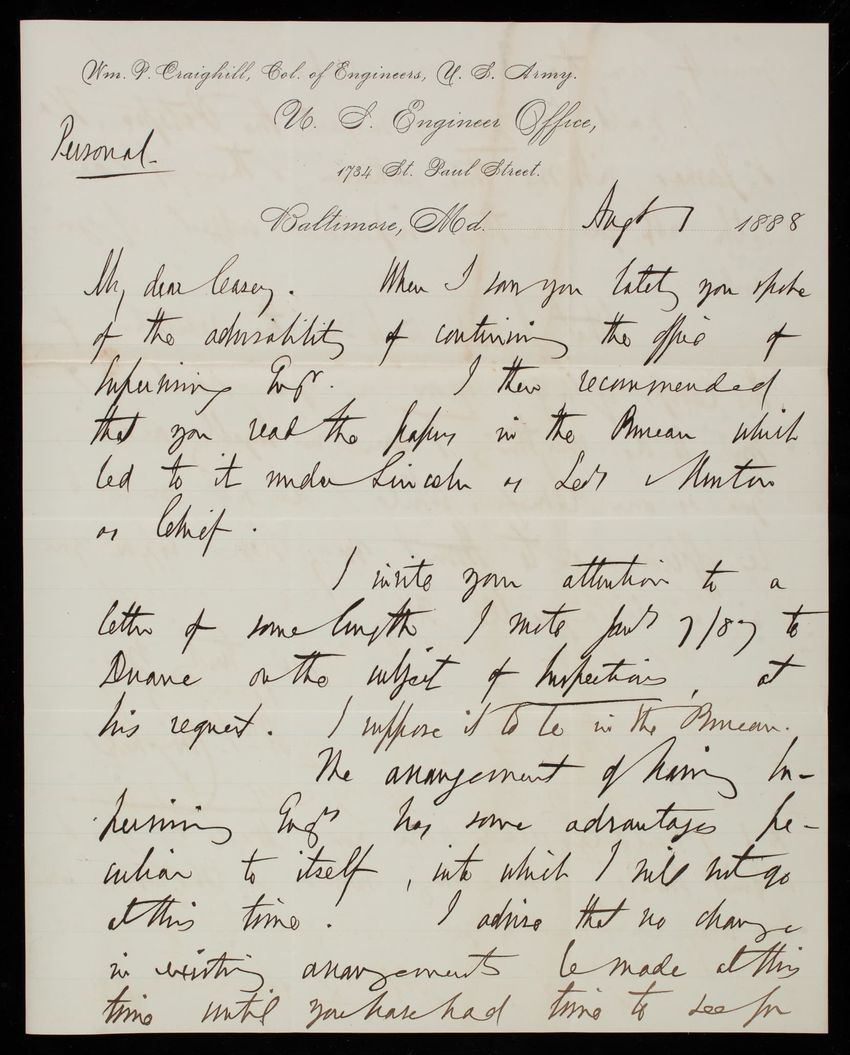 Wm. P. Craighill, Col. of Engineers, U. S. Army.
U. S. Engineer Office,
Personal.
1734 St. Paul Street.
Baltimore, Md. Augt 7 1888
My dear Casey. When I saw you lately you spoke
of the advisability of continuing the office of
Supervising Engr. I then recommended
that you read the papers in the Bureau which
led to it under Lincoln as Secy & Newton
as Chief.
I invite your attention to a
letter of some length I wrote 7/87 to
Duane on the subject of Inspections, at
his request. I suppose it to be in the Bureau.
The arrangement of having Su-
pervising Engrs has some advantages pe-
culiar to itself, into which I will not go
at this time. I advise that no change
in existing arrangements be made at this
time until you have had time to see for